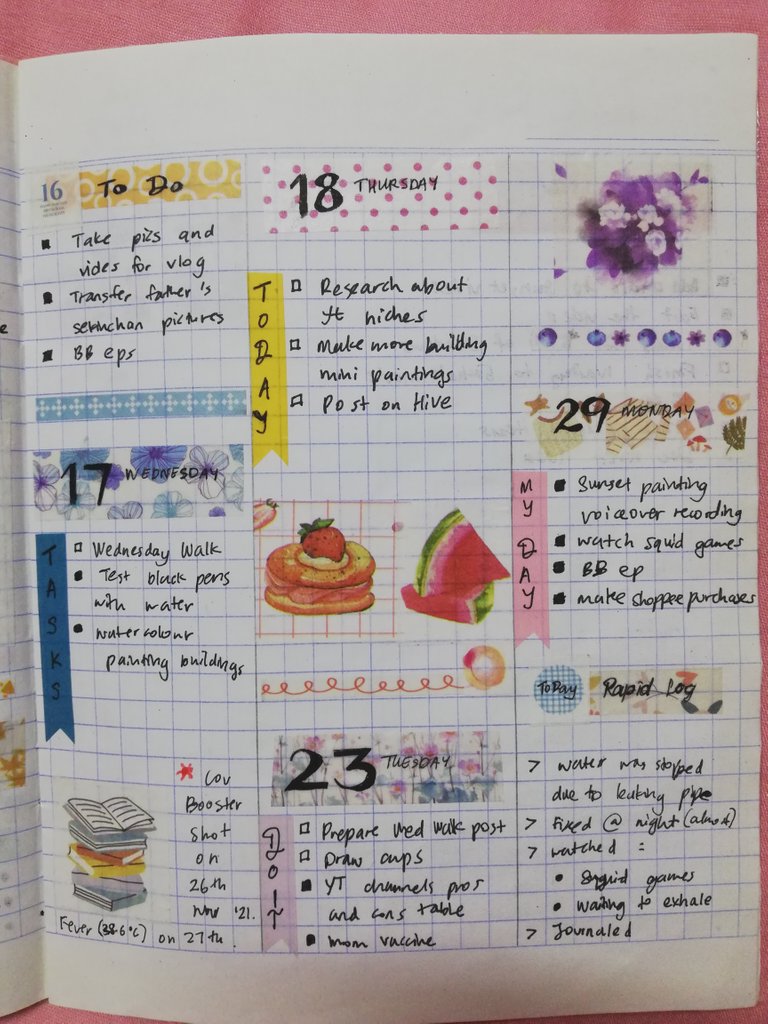 16 To Do
Take pics and
vides for vlog
Transfer father's
sekinchan pictures
BB eps
17 WEDNESDAY
TASKS
Wednesday Walk
Test black pens
with water
watercolour
painting buildings
Cov
Booster
shot
on
26th
Nov '21.
Fever (38.6°C) on 27th.
18 THURSDAY
TODAY
Research about
yt niches
Make more building
mini paintings
Post on Hive
23 TUESDAY
DO IT
Prepare wed walk post
Draw cups
YT channels pros
and cons table
mom vaccine
29 MONDAY
MY DAY
Sunset painting
voiceover recording
watch squid games
BB ep
make shoppee purchases
TODAY Rapid Log
> water was stopped
due to leaking pipe
> Fixed @ night (almost)
> watched :
• squid games
• waiting to exhale
> Journaled